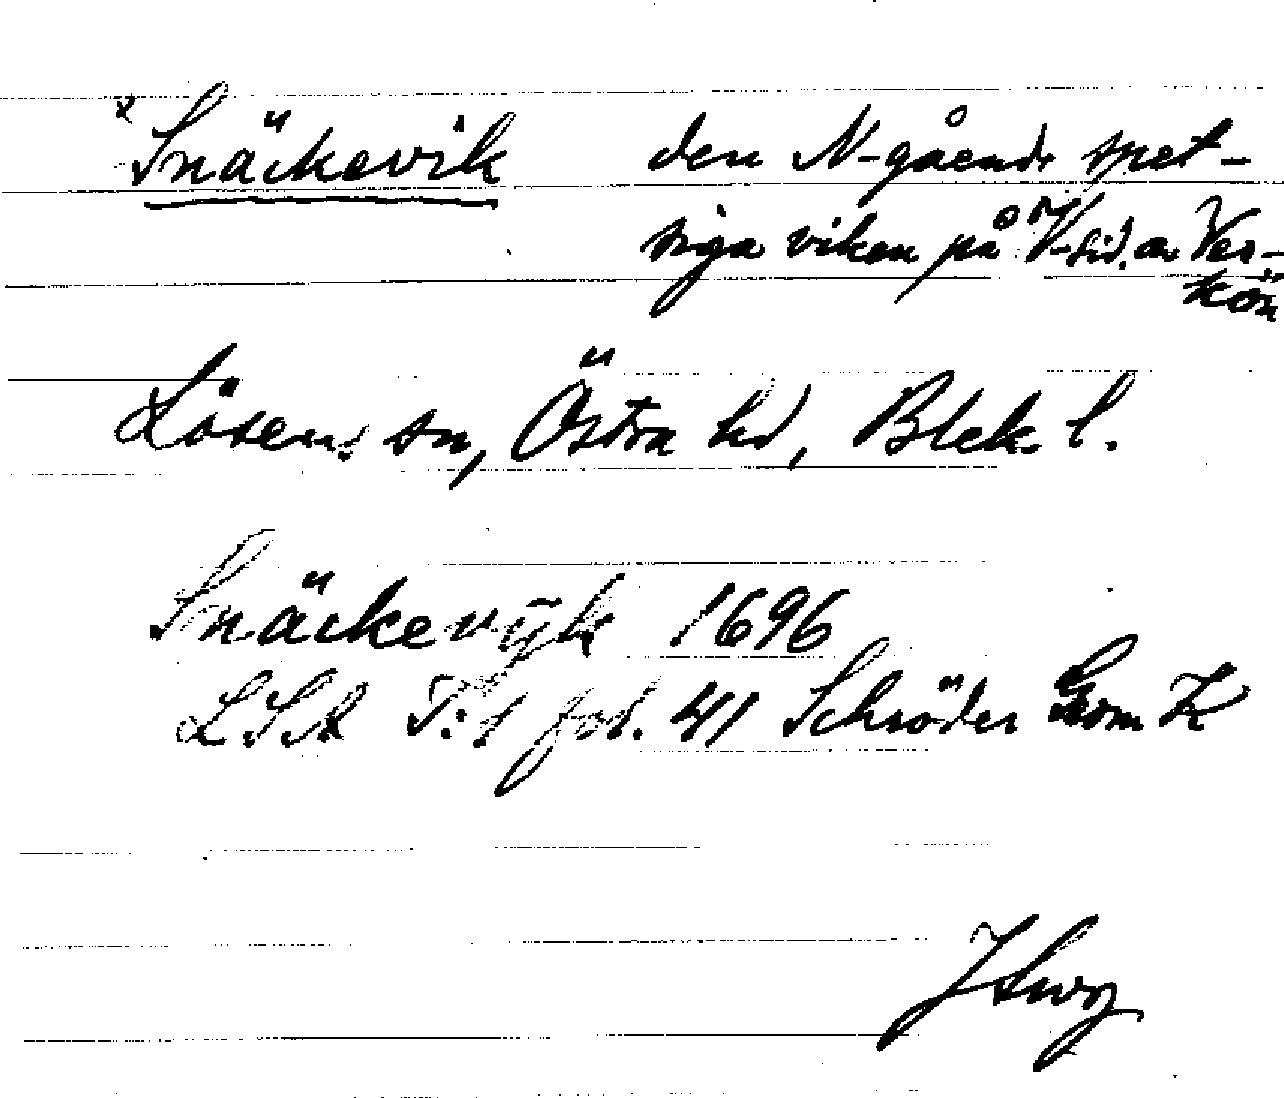 x Snäckevik den N-gående spet-
siga viken på V-sid. av Ver-
kön
Lösens sn, Östra hd, Blek. l.
Snäckevÿk 1696
LSA T:1 fol. 41 Schröder Grom K